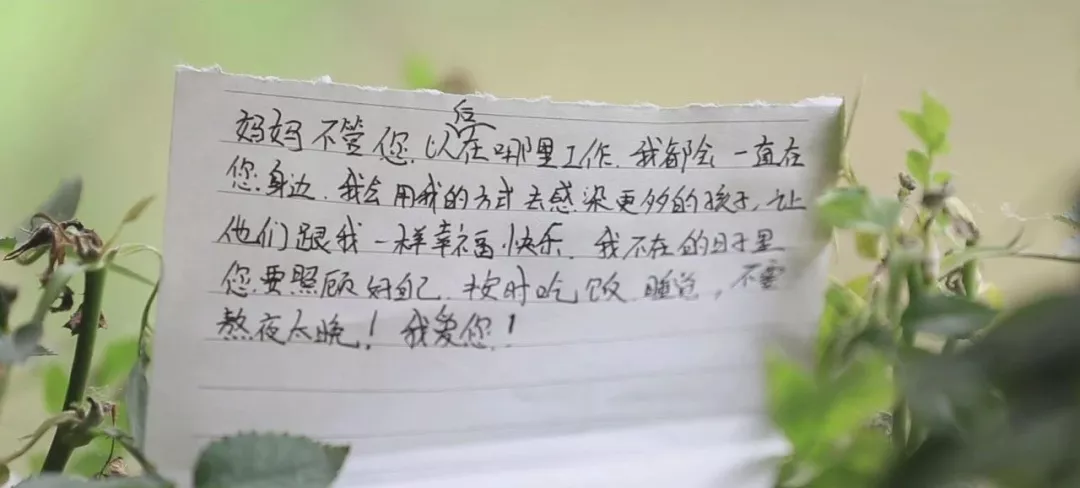 妈妈不管您以后在哪里工作.我都会一直在
您身边.我会用我的方式去感染更多的孩子,让
他们跟我一样幸福.快乐.我不在的日子里
您要照顾好自己.按时吃饭.睡觉,不要
熬夜太晚!我爱您!